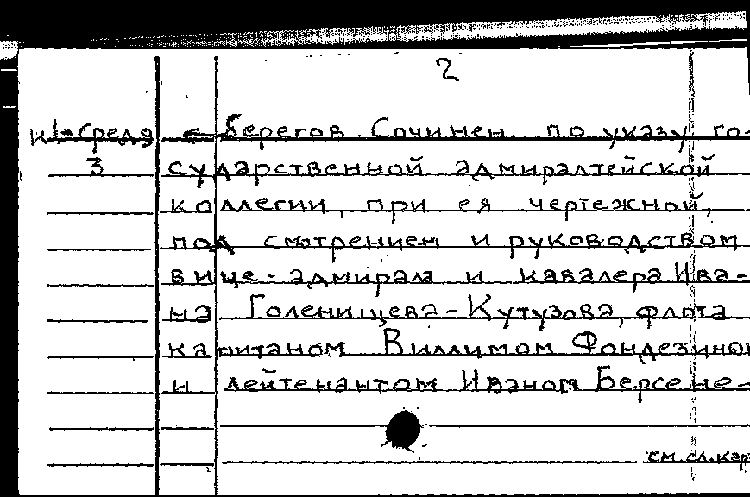 2
берегов Сочинен по указу го-
3 сударственной адмиралтейской
коллегии, при ея чертежной,
под смотрением и руководством
вице-адмирала и кавалера Ива-
на Голенищева-Кутузова, флота
капитаном Виллимом Фондезином
и лейтенантом Иваном Берсене-
см. сл. кар